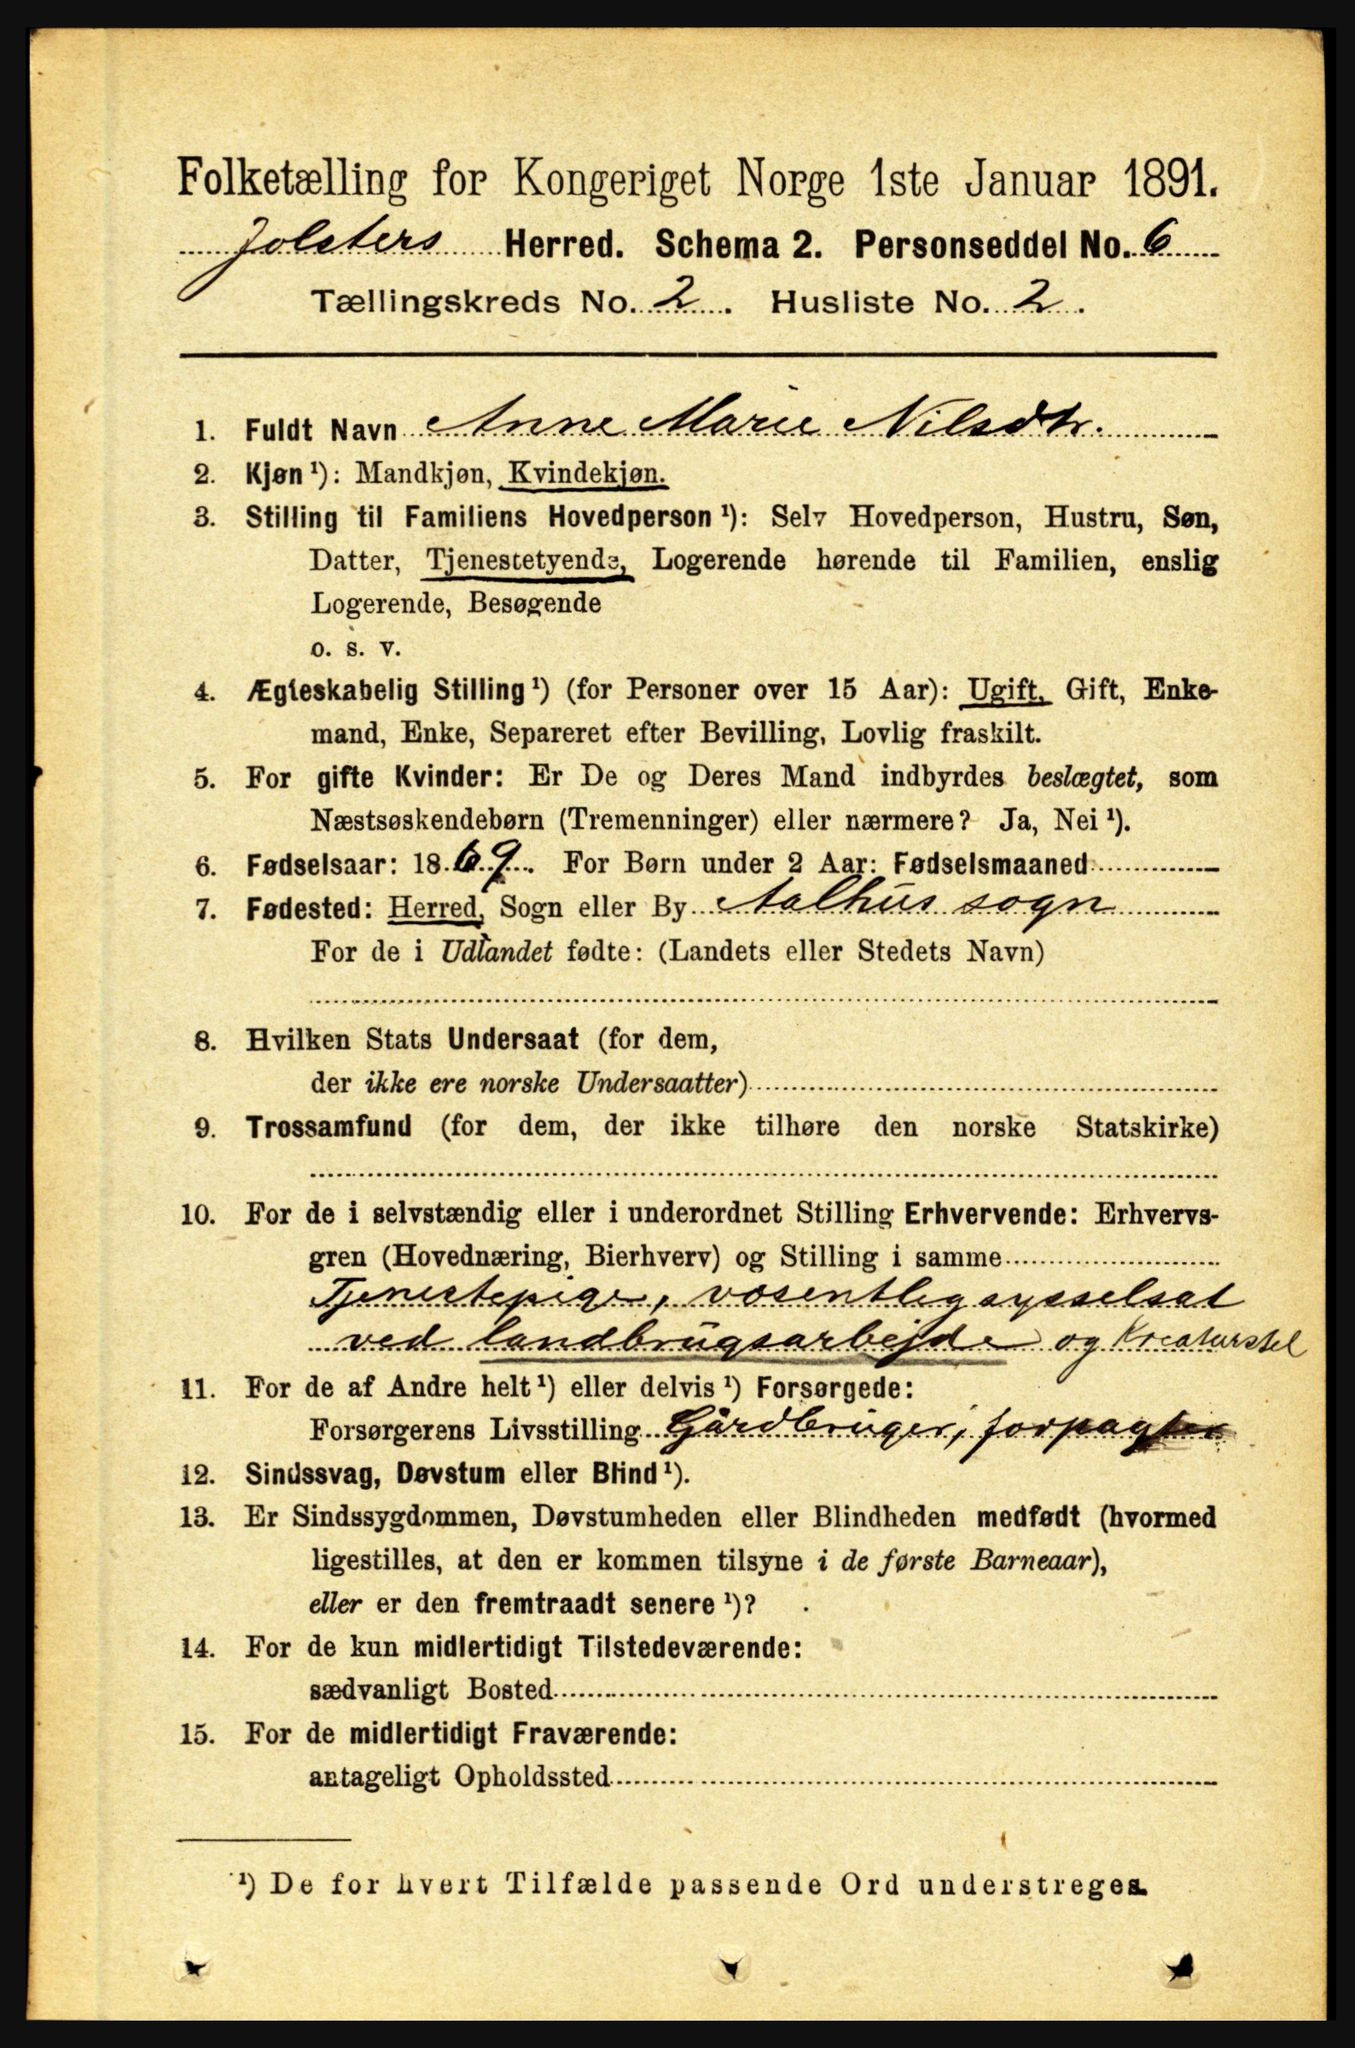 Folketælling for Kongeriget Norge 1ste Januar 1891.
Jolsters Herred. Schema 2. Personseddel No. 6
Tællingskreds No. 2. Husliste No. 2.
1. Fuldt Navn Anne Marie Nilsdtr.
2. Kjøn ¹): Mandkjøn, Kvindekjøn.
3. Stilling til Familiens Hovedperson ¹): Selv Hovedperson, Hustru, Søn,
Datter, Tjenestetyende, Logerende hørende til Familien, enslig
Logerende, Besøgende
o. s. v.
4. Ægteskabelig Stilling ¹) (for Personer over 15 Aar): Ugift, Gift, Enke-
mand, Enke, Separeret efter Bevilling, Lovlig fraskilt.
5. For gifte Kvinder: Er De og Deres Mand indbyrdes beslægtet, som
Næstsøskendebørn (Tremenninger) eller nærmere? Ja, Nei ¹).
6. Fødselsaar: 1869. For Børn under 2 Aar: Fødselsmaaned
7. Fødested: Herred, Sogn eller By Aalhus sogn
For de i Udlandet fødte: (Landets eller Stedets Navn)
8. Hvilken Stats Undersaat (for dem,
der ikke ere norske Undersaatter)
9. Trossamfund (for dem, der ikke tilhøre den norske Statskirke)
10. For de i selvstændig eller i underordnet Stilling Erhvervende: Erhvervs-
gren (Hovednæring, Bierhverv) og Stilling i samme
Tjenestepige, væsentlig sysselsat
ved landbrugsarbejde og Kreaturstel
11. For de af Andre helt ¹) eller delvis ¹) Forsørgede:
Forsørgerens Livsstilling Gårdbruger, forpagter
12. Sindssvag, Døvstum eller Blind ¹).
13. Er Sindssygdommen, Døvstumheden eller Blindheden medfødt (hvormed
ligestilles, at den er kommen tilsyne i de første Barneaar),
eller er den fremtraadt senere ¹)?
14. For de kun midlertidigt Tilstedeværende:
sædvanligt Bosted
15. For de midlertidigt Fraværende:
antageligt Opholdssted
¹) De for hvert Tilfælde passende Ord understreges.